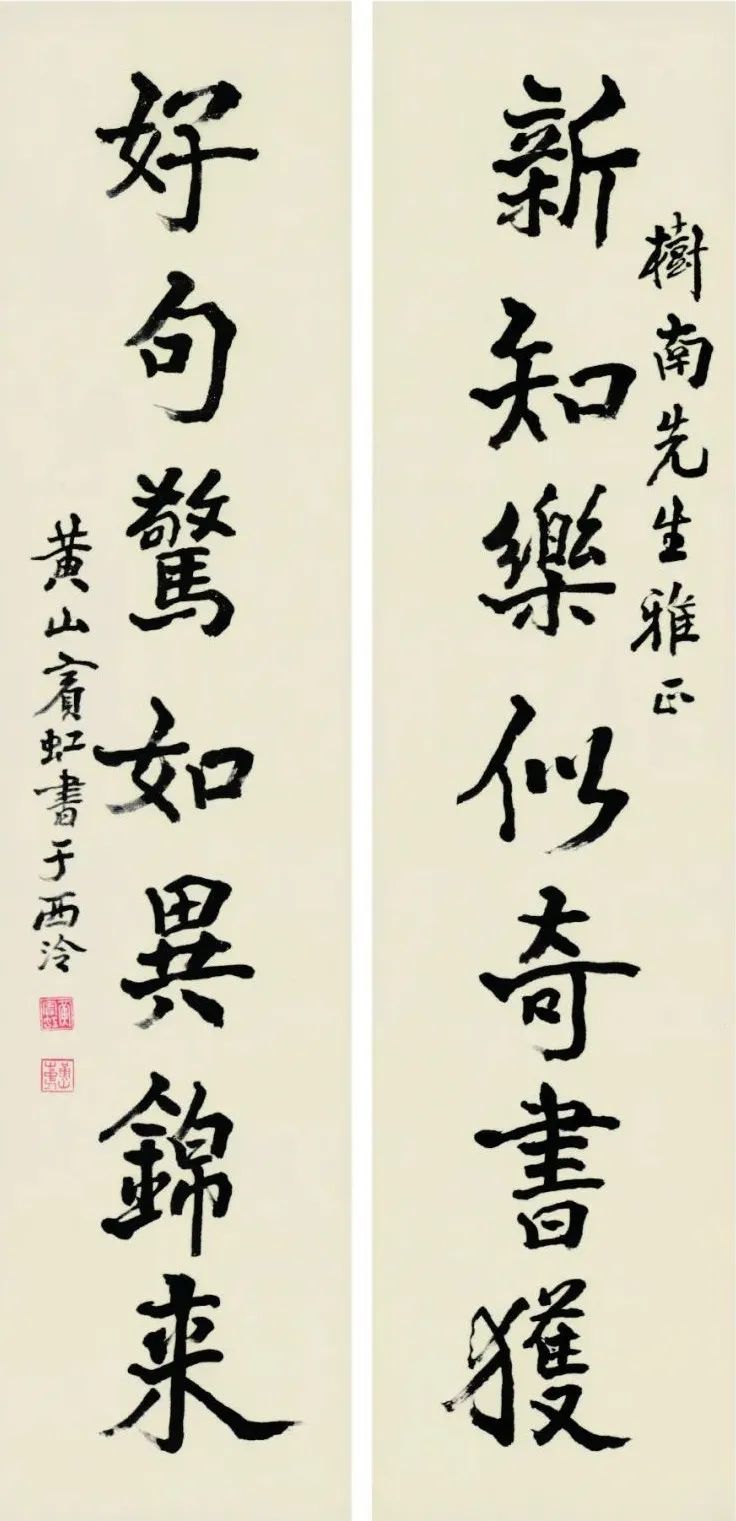 樹南先生雅正
新知樂似奇書獲
好句驚如異錦来
黄山賓虹書于西泠